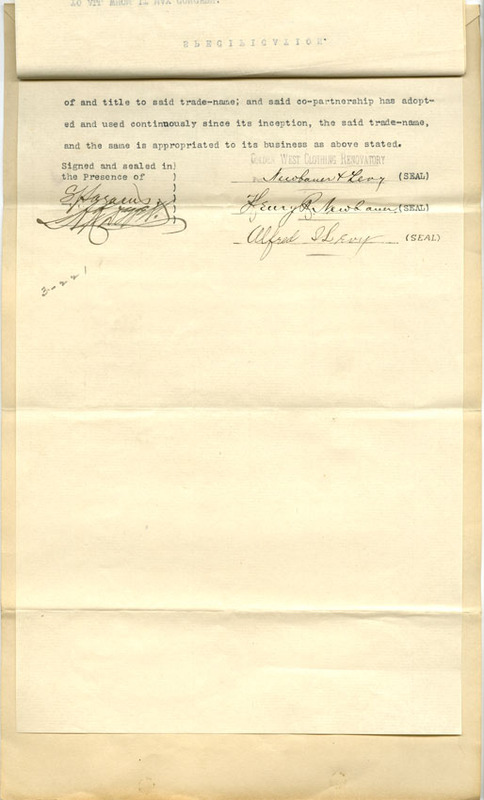 of and title to said trade-name; and said co-partnership has adopt-
ed and used continuously since its inception, the said trade-name,
and the same is appropriated to its business as above stated.
Signed and sealed in)
the Presence of )
GOLDEN WEST CLOTHING RENOVATORY
Newbauer & Levy (SEAL)
Henry R Newbauer (SEAL)
Alfred I Levy (SEAL)
3-221